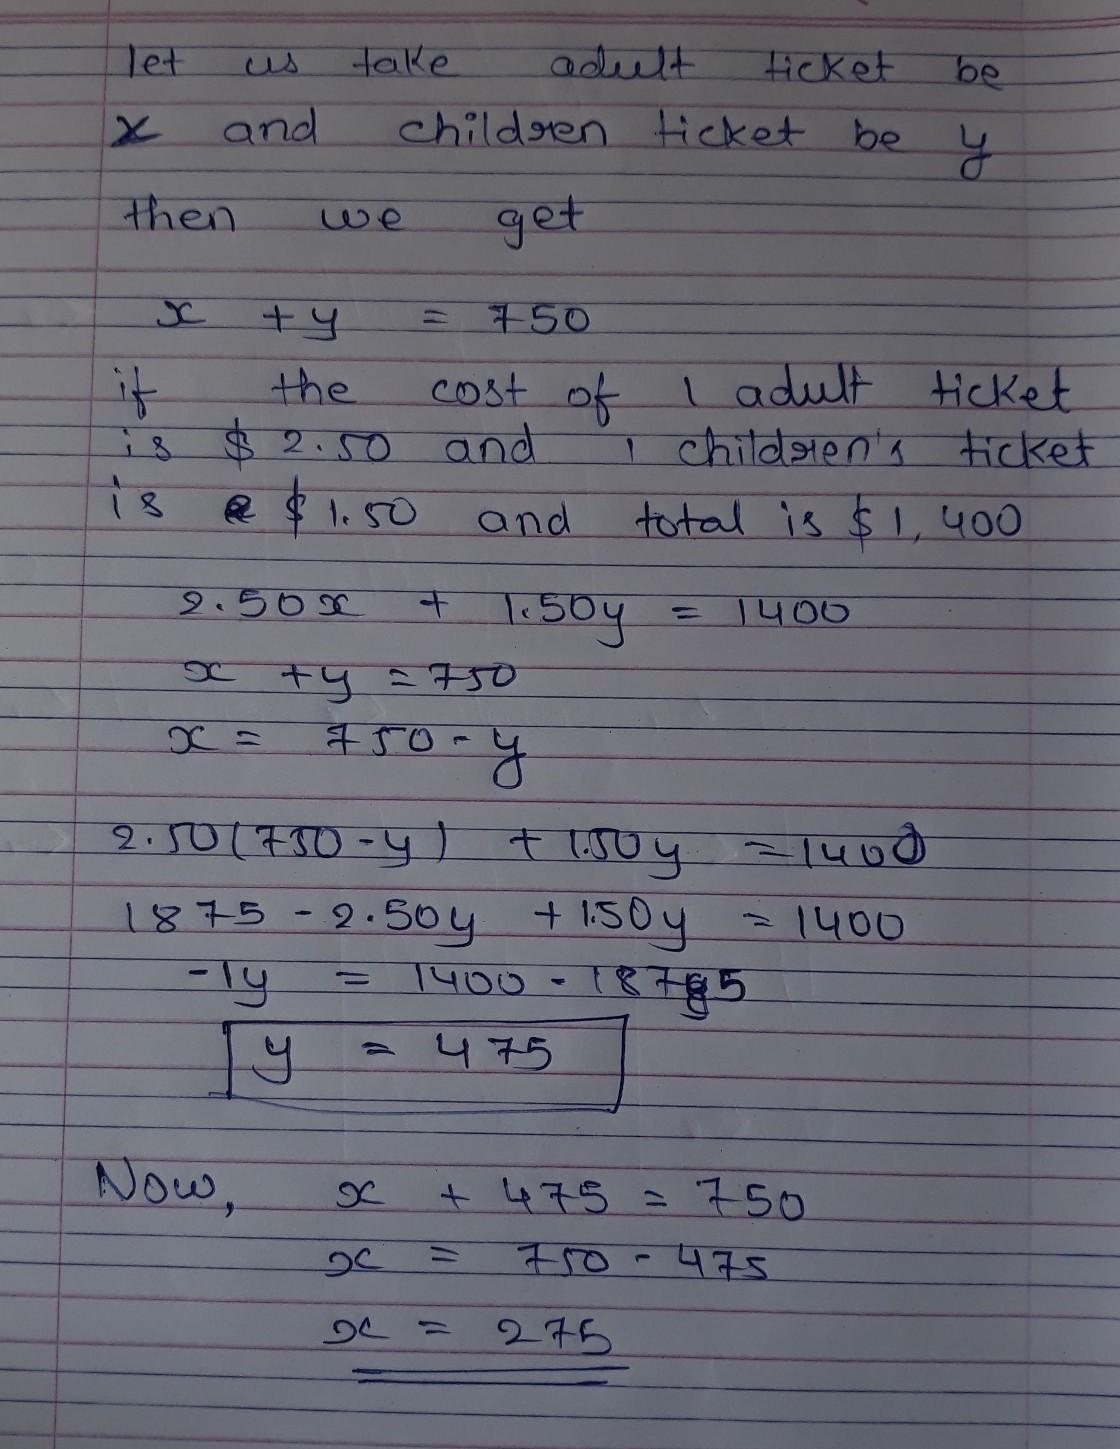 let us take adult ticket be
x and children ticket be y
then we get
x + y = 750
if the cost of 1 adult ticket
is $ 2.50 and 1 children's ticket
is $ 1.50 and total is $ 1,400
2.50x + 1.50y = 1400
x + y = 750
x = 750 - y
2.50(750 - y) + 1.50y = 1400
1875 - 2.50y + 1.50y = 1400
-1y = 1400 - 1875
y = 475
Now, x + 475 = 750
x = 750 - 475
x = 275